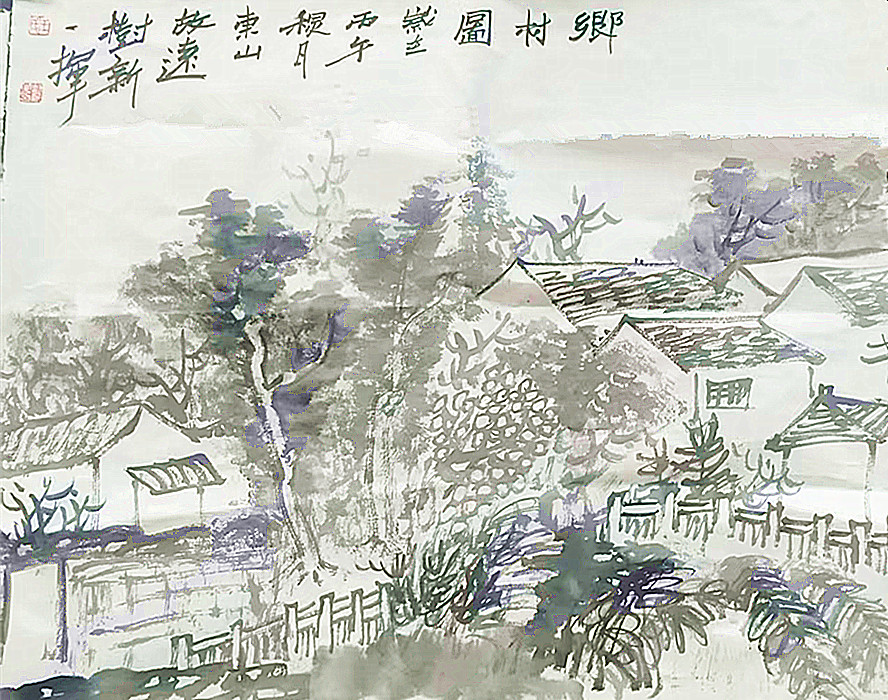 鄉
村
圖
歲在
丙午
月
東山
故遠
樹新
一揮